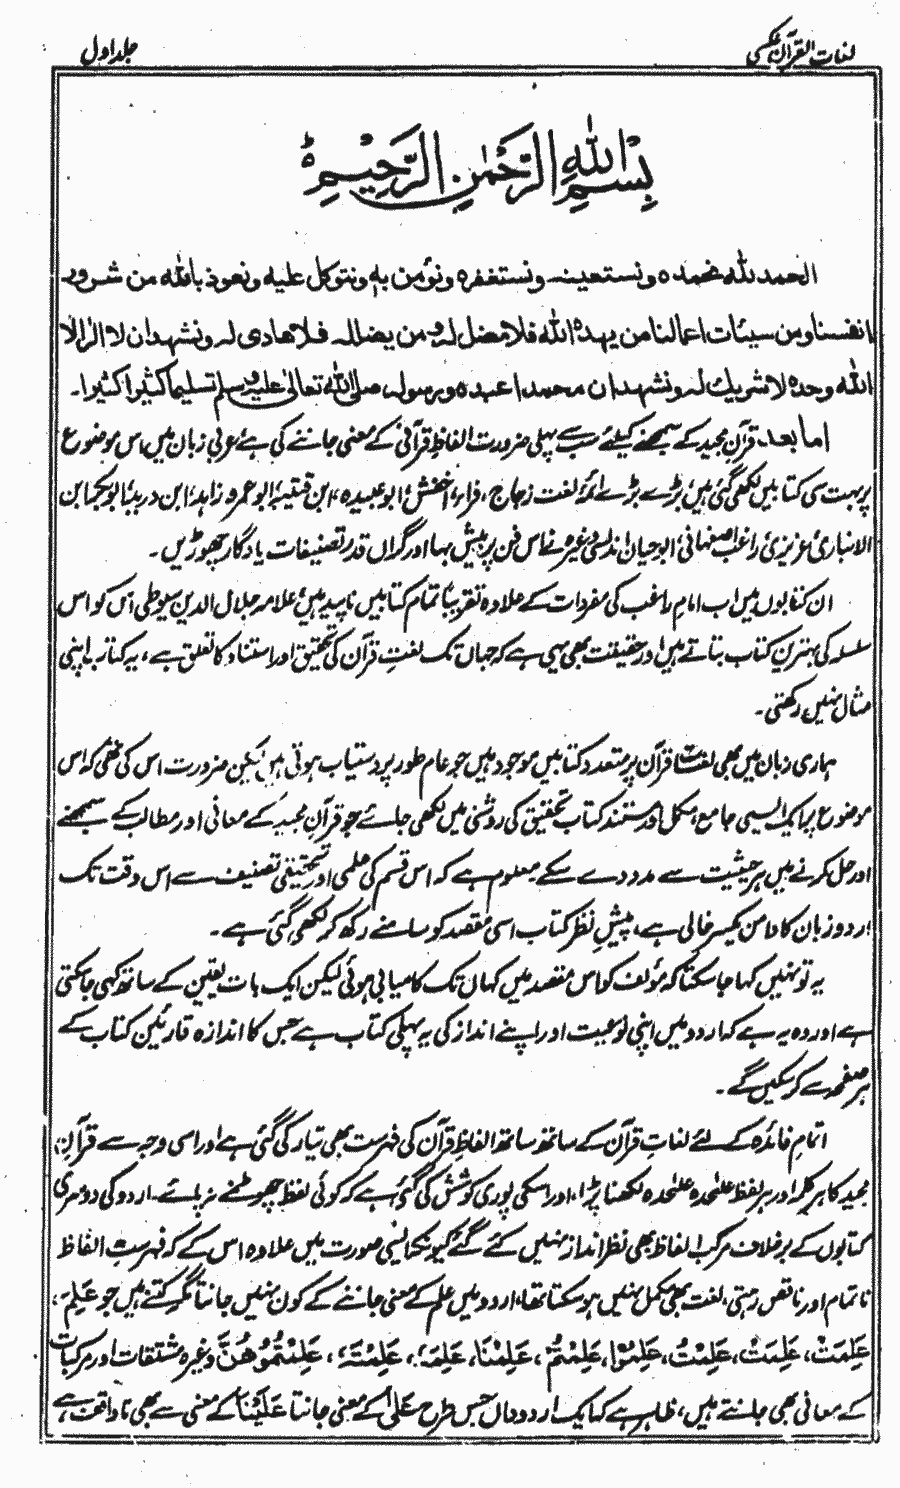 لغات القرآن عکسی
جلد اول
بِسْمِ اللهِ الرَّحْمٰنِ الرَّحِیْمِ ط
الحمد لله نحمده ونستعینه ونستغفره ونؤمن به ونتوکل علیه ونعوذ بالله من شرور
انفسنا ومن سیئات اعمالنا من یهده الله فلا مضل له ومن یضلله فلا هادی له ونشهد ان لا اله الا
الله وحده لا شریك له ونشهد ان محمدا عبده ورسوله صلی الله تعالیٰ علیه وسلم تسلیما کثیرا کثیرا۔
اما بعد قرآن مجید کے سمجھنے کیلئے سب سے پہلی ضرورت الفاظِ قرآنی کے معنی جاننے کی ہے، عربی زبان میں اس موضوع
پر بہت سی کتابیں لکھی گئی ہیں، بڑے بڑے ائمۂ لغت زجاج، فراء، اخفش، ابو عبیدہ، ابن قتیبہ، ابو عمرو زاہد، ابن درید، ابوبکر ابن
الانباری، عزیزی، راغب اصفہانی، ابو حیان اندلسی وغیرہ نے اس فن پر بیش بہا اور گراں قدر تصنیفات یادگار چھوڑیں۔
ان کتابوں میں اب امام راغب کی مفردات کے علاوہ تقریباً تمام کتابیں ناپید ہیں، علامہ جلال الدین سیوطی اس کو اس
سلسلہ کی بہترین کتاب بتاتے ہیں اور حقیقت بھی یہی ہے کہ جہاں تک لغتِ قرآن کی تحقیق اور استناد کا تعلق ہے، یہ کتاب اپنی
مثال نہیں رکھتی۔
ہماری زبان میں بھی لغت قرآن پر متعدد کتابیں موجود ہیں جو عام طور پر دستیاب ہوتی ہیں لیکن ضرورت اس کی تھی کہ اس
موضوع پر ایک ایسی جامع، مکمل اور مستند کتاب تحقیق کی روشنی میں لکھی جائے جو قرآن مجید کے معانی اور مطالب کے سمجھنے
اور حل کرنے میں ہر حیثیت سے مدد دے سکے معلوم ہے کہ اس قسم کی علمی اور تحقیقی تصنیف سے اس وقت تک
اردو زبان کا دامن یکسر خالی ہے، پیشِ نظر کتاب اسی مقصد کو سامنے رکھ کر لکھی گئی ہے۔
یہ تو نہیں کہا جا سکتا کہ مؤلف کو اس مقصد میں کہاں تک کامیابی ہوئی لیکن ایک بات یقین کے ساتھ کہی جا سکتی
ہے اور وہ یہ ہے کہ اردو میں اپنی نوعیت اور اپنے انداز کی یہ پہلی کتاب ہے جس کا اندازہ قارئین کتاب کے
ہر صفحہ سے کر سکیں گے۔
اتمامِ فائدہ کے لئے لغاتِ قرآن کے ساتھ ساتھ الفاظِ قرآن کی فہرست بھی تیار کی گئی ہے اور اسی وجہ سے قرآن
مجید کا ہر کلمہ اور ہر لفظ علٰحدہ علٰحدہ لکھنا پڑا، اور اسکی پوری کوشش کی گئی ہے کہ کوئی لفظ چھوٹنے نہ پائے۔ اردو کی دوسری
کتابوں کے برخلاف مرکب الفاظ بھی نظر انداز نہیں کئے گئے کیونکہ ایسی صورت میں علاوہ اس کے کہ فہرست الفاظ
ناتمام اور ناقص رہتی، لغت بھی مکمل نہیں ہو سکتا تھا، اردو میں علم کے معنی جاننے کے کون نہیں جانتا مگر کتنے ہیں جو عَلِمَ،
عَلِمَتْ، عَلِمَتْ، عَلِمْتُ، عَلِمُوْا، عَلِمْتُمْ، عَلِمْنَا، عَلِمَہٗ، عَلِمْتَہٗ، عَلِمْتُمُوْهُنَّ وغیرہ مشتقات اور مرکبات
کے معانی بھی جانتے ہیں، ظاہر ہے کہ ایک اردو داں جس طرح عَلٰی کے معنی جانتا عَلَیْنَا کے معنی سے بھی ناواقف ہے،